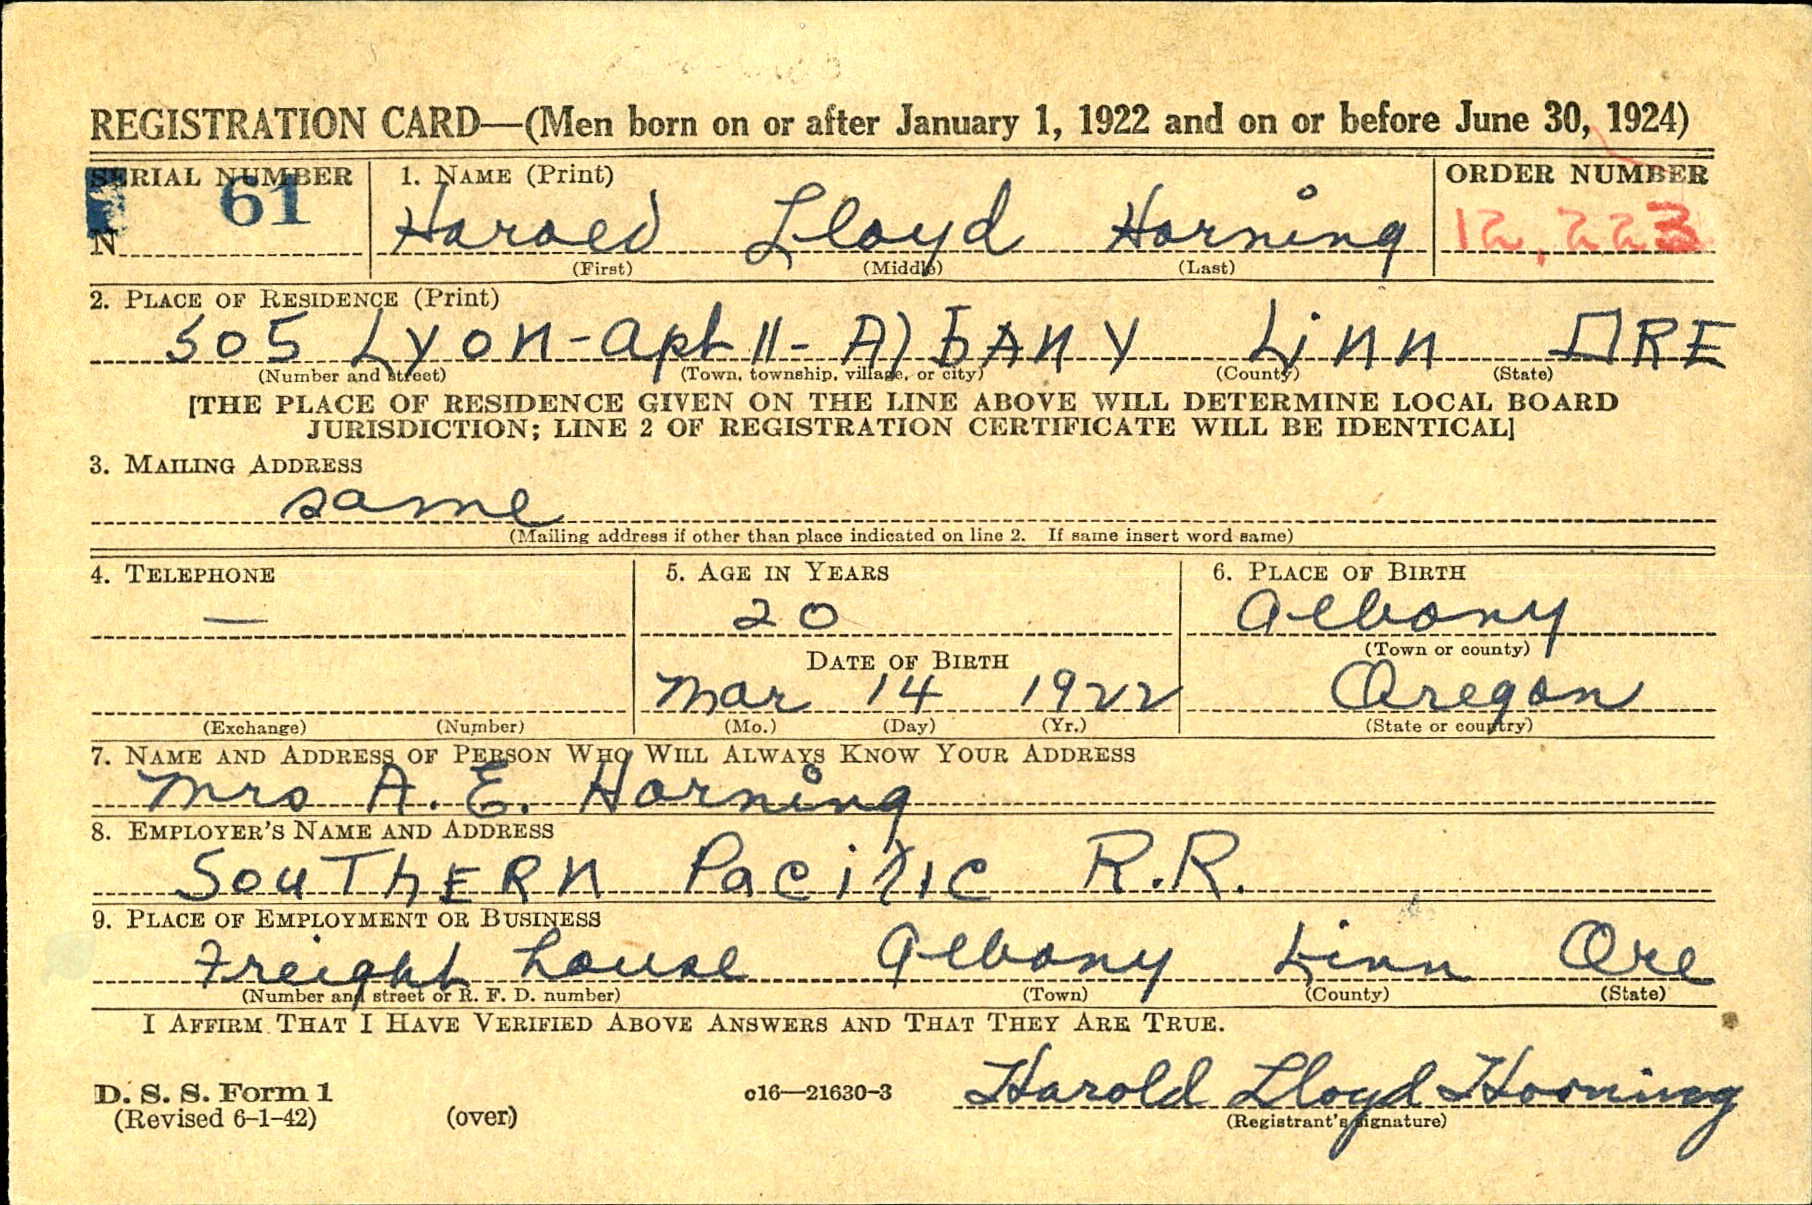 REGISTRATION CARD—(Men born on or after January 1, 1922 and on or before June 30, 1924)
SERIAL NUMBER 1. NAME (Print) ORDER NUMBER
N 61 Harold Lloyd Horning 12,223
(First) (Middle) (Last)
2. PLACE OF RESIDENCE (Print)
505 Lyon - Apt 11 - AlbANY Linn ORE
(Number and street) (Town, township, village, or city) (County) (State)
[THE PLACE OF RESIDENCE GIVEN ON THE LINE ABOVE WILL DETERMINE LOCAL BOARD
JURISDICTION; LINE 2 OF REGISTRATION CERTIFICATE WILL BE IDENTICAL]
3. MAILING ADDRESS
same
(Mailing address if other than place indicated on line 2. If same insert word same)
4. TELEPHONE 5. AGE IN YEARS 6. PLACE OF BIRTH
— 20 Albany
DATE OF BIRTH (Town or county)
Mar 14 1922 Oregon
(Exchange) (Number) (Mo.) (Day) (Yr.) (State or country)
7. NAME AND ADDRESS OF PERSON WHO WILL ALWAYS KNOW YOUR ADDRESS
Mrs A. E. Horning
8. EMPLOYER'S NAME AND ADDRESS
SouThERN Pacific R.R.
9. PLACE OF EMPLOYMENT OR BUSINESS
Freight house Albany Linn Ore
(Number and street or R. F. D. number) (Town) (County) (State)
I AFFIRM THAT I HAVE VERIFIED ABOVE ANSWERS AND THAT THEY ARE TRUE.
D. S. S. Form 1 c16—21630-3 Harold Lloyd Horning
(Revised 6-1-42) (over) (Registrant's signature)